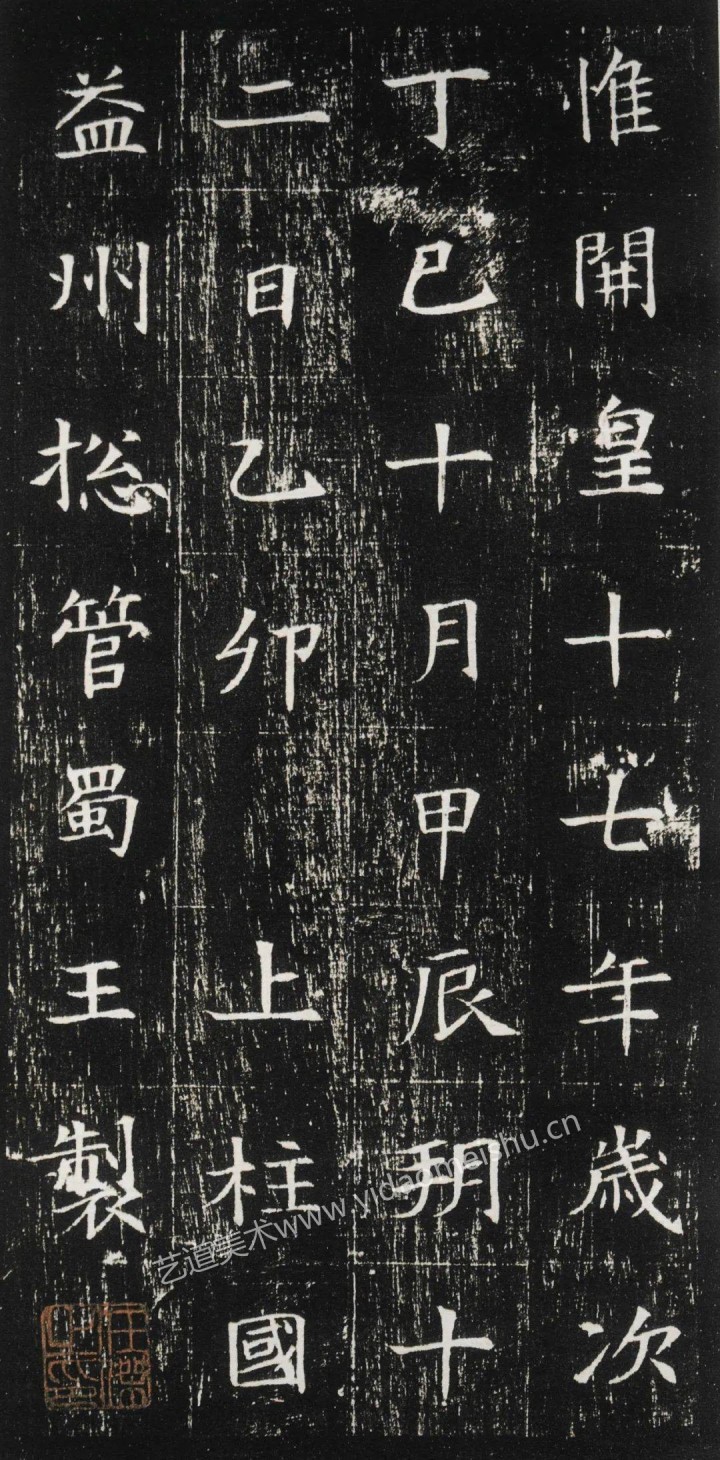 惟開皇十七年歲次
丁巳十月甲辰朔十
二日乙卯 上柱國
益州捴管蜀王製
艺道美术www.yidaomeishu.cn